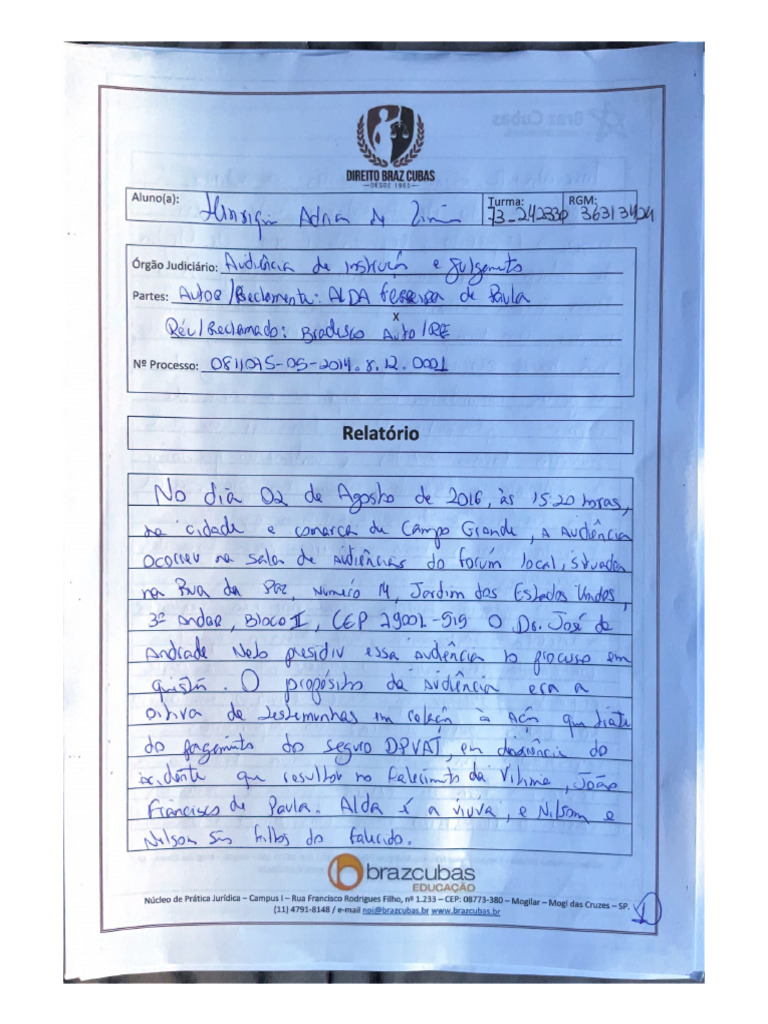 DIREITO BRAZ CUBAS
DESDE 1965
Aluno(a): Adna de
Turma: RGM:
73-242330 36313424
Órgão Judiciário: Audiência de instrução e julgamento
Partes: Autor/Reclamente: ALDA Ferreira de Paula
x
Réu/Reclamado: Bradesco Auto/RE
Nº Processo: 0811075-05-2014.8.12.0001
Relatório
No dia 02 de Agosto de 2016, às 15:20 horas,
na cidade e comarca de Campo Grande, a Audiência
ocorreu na sala de audiências do forum local, situada
na Rua da Paz, número 14, Jardim dos Estados Unidos,
3º andar, Bloco II, CEP 79002-919 O Dr. José de
Andrade Neto presidiu essa audiência no processo em
questão. O propósito da audiência era a
oitiva de testemunhas em relação à ação que trata
do pagamento do seguro DPVAT, em decorrência do
acidente que resultou no falecimento da vítima, João
Francisco de Paula. Alda é a viúva, e Nilson e
Nilson são filhos do falecido.
brazcubas
EDUCAÇÃO
Núcleo de Prática Jurídica – Campus I – Rua Francisco Rodrigues Filho, nº 1.233 – CEP: 08773-380 – Mogilar – Mogi das Cruzes – SP.
(11) 4791-8148 / e-mail npj@brazcubas.br www.brazcubas.br